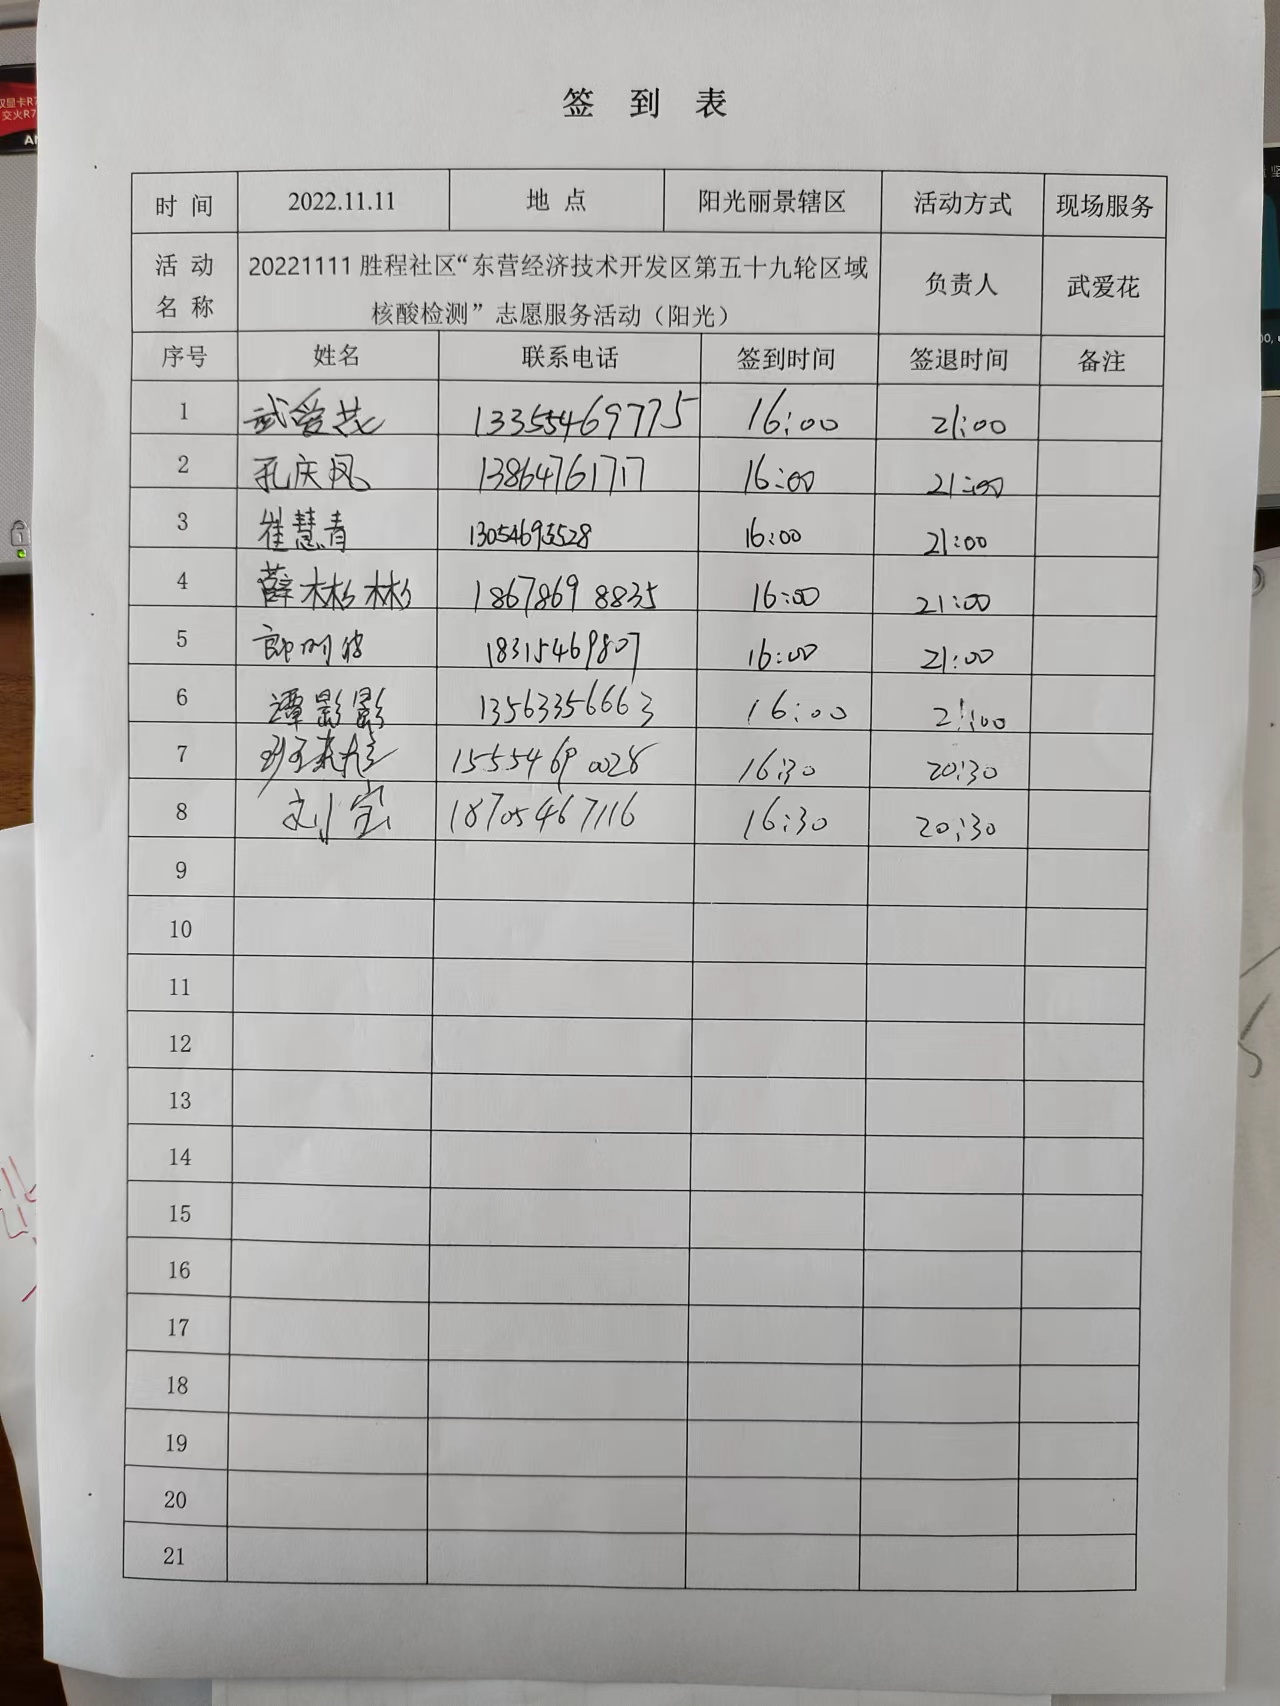 签 到 表
时 间 2022.11.11 地 点 阳光丽景辖区 活动方式 现场服务
活 动 名 称 20221111 胜程社区“东营经济技术开发区第五十九轮区域
核酸检测”志愿服务活动（阳光） 负责人 武爱花
序号 姓名 联系电话 签到时间 签退时间 备注
1 武爱花 13355469775 16:00 21:00
2 孔庆凤 13864761717 16:00 21:00
3 崔慧青 13054693528 16:00 21:00
4 薛彬彬 18678698835 16:00 21:00
5 18315469807 16:00 21:00
6 谭影影 13563356663 16:00 21:00
7 15554690028 16:30 20:30
8 刘宝 18705467116 16:30 20:30
9
10
11
12
13
14
15
16
17
18
19
20
21